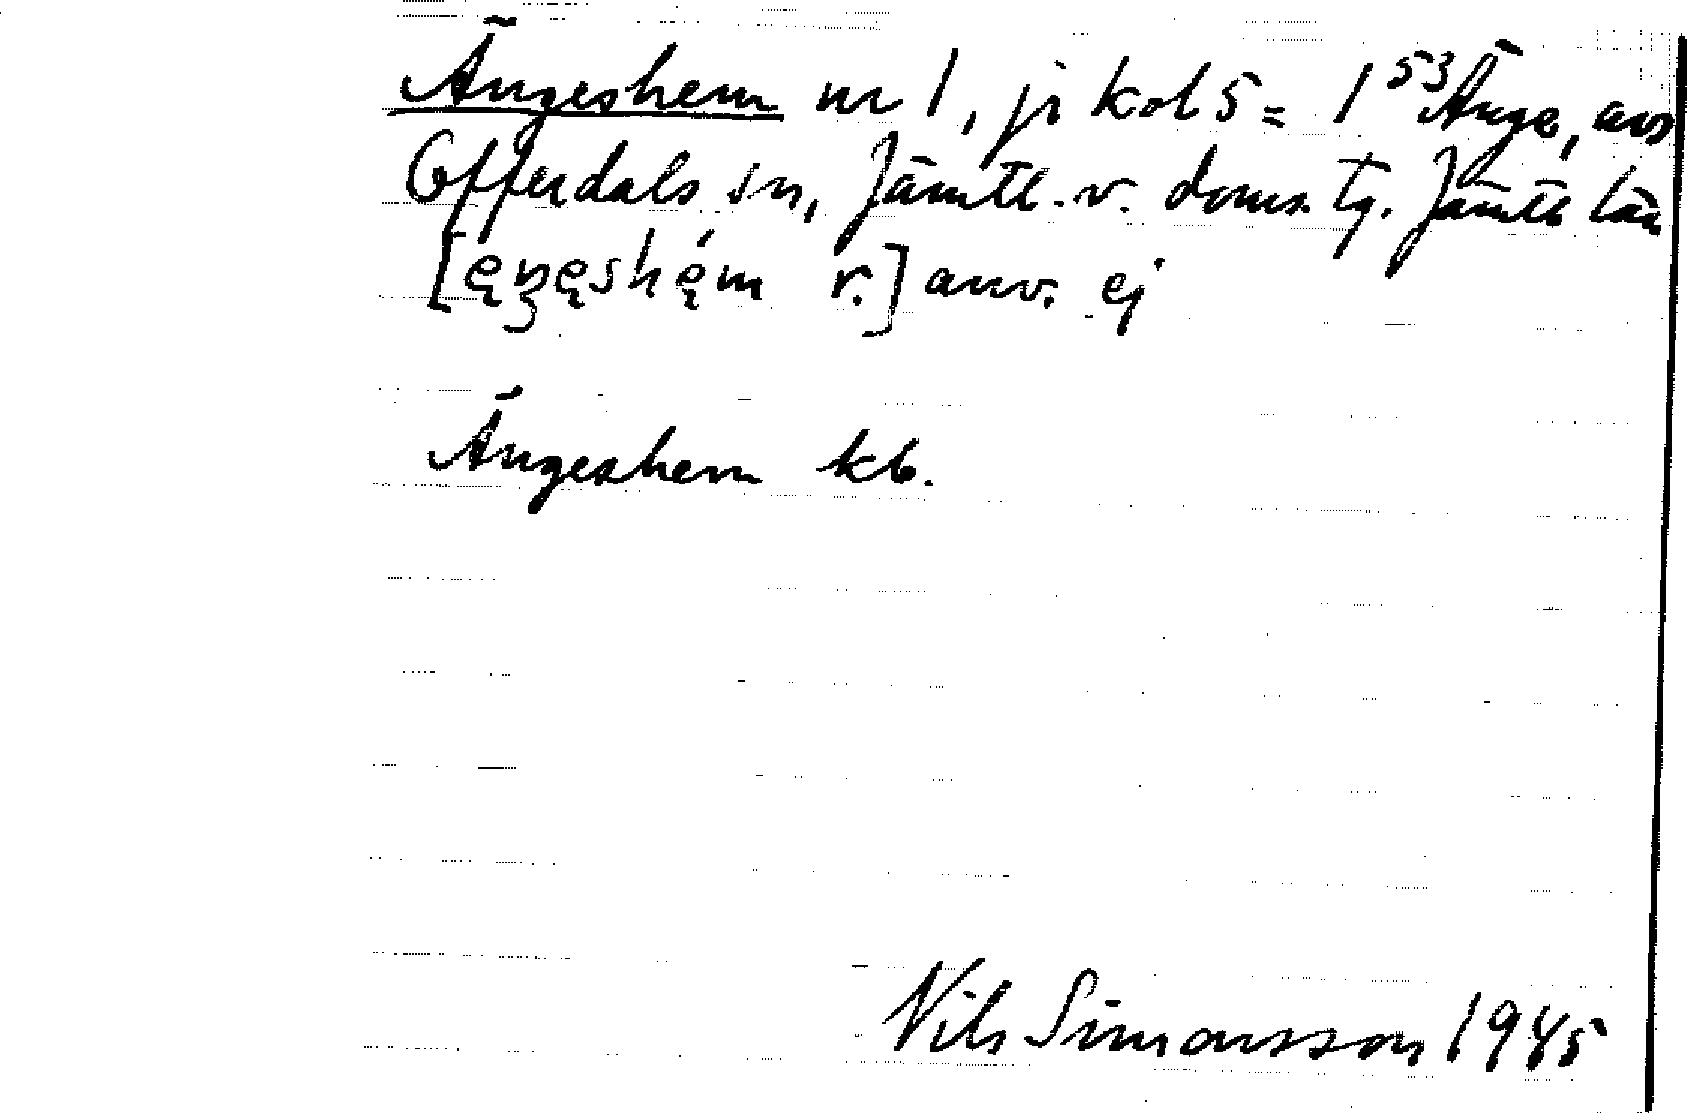 Ängeshem nr 1, jr kol 5 = 1⁵³ Änge, avs
Offerdals sn, Jämtl. v. doms. tg. Jämtl län
[ęŋęshę́m r.] anv. ej
Ängeshem kb.
Nils Simonsson 1945